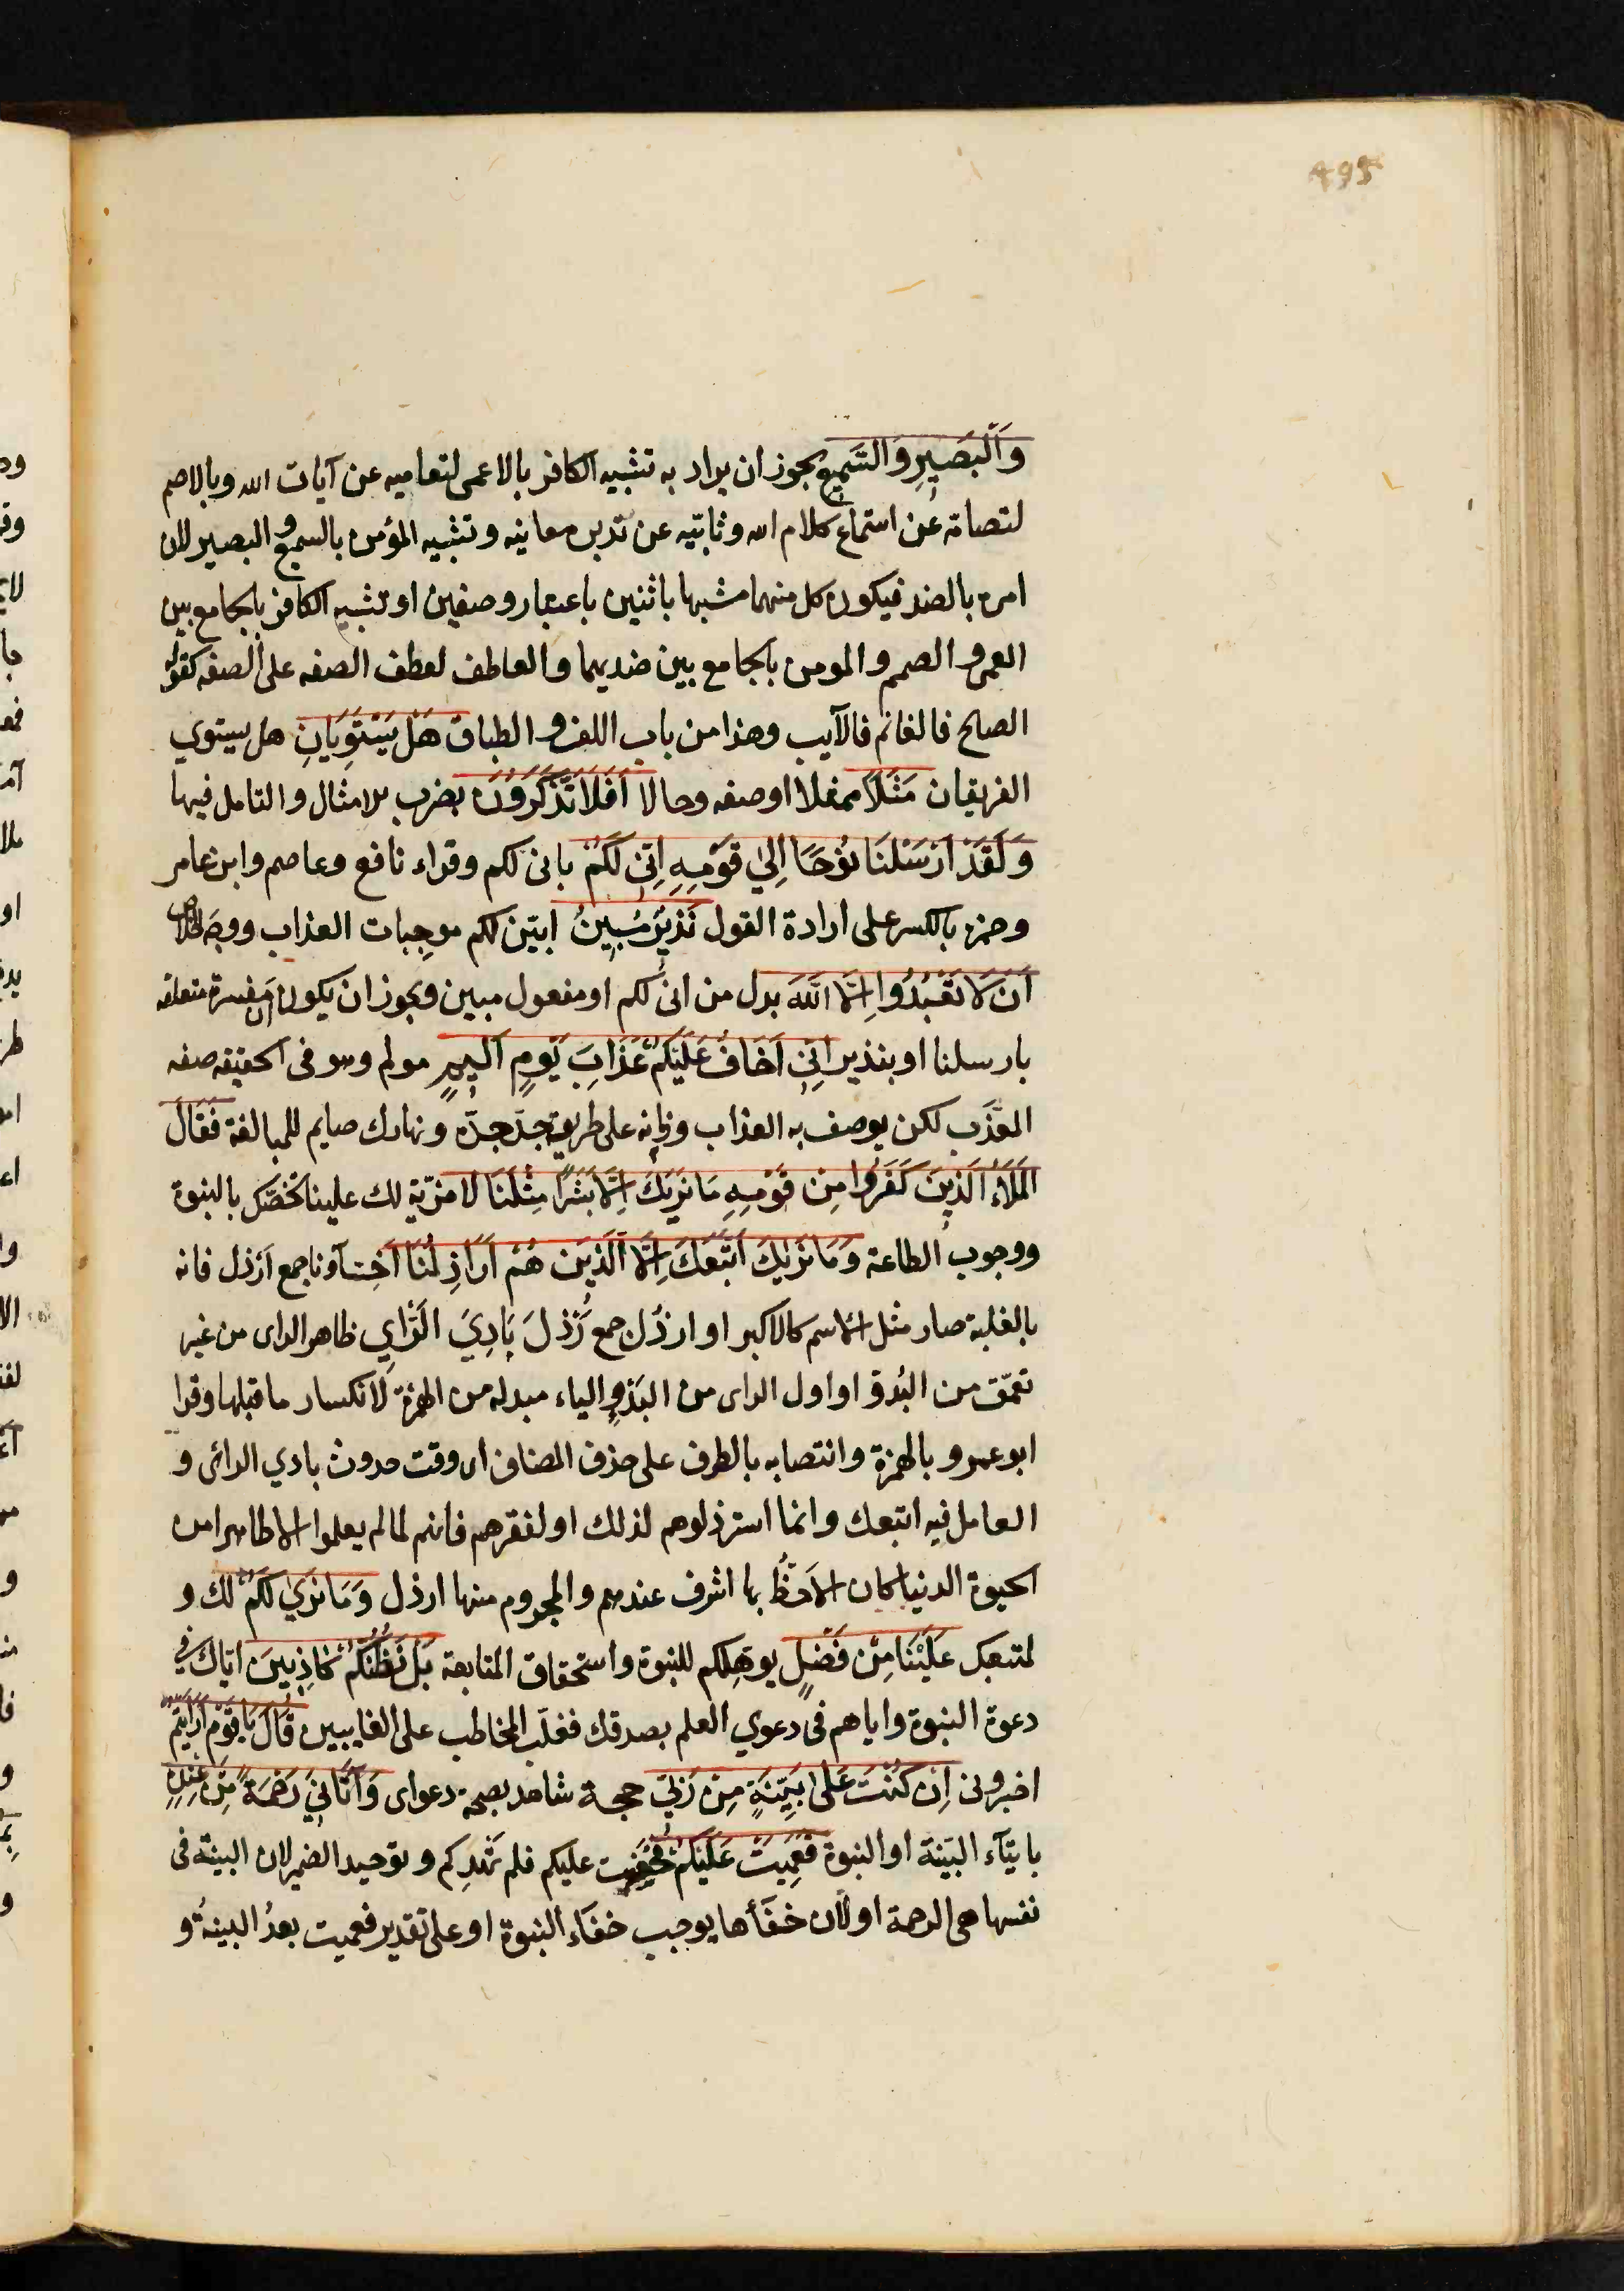 495
وَالْبَصِيرِ وَالسَّمِيعِ يجوز ان يراد به تشبيه الكافر بالاعمى لتعاميه عن آيات الله وبالاصم
لتصامه عن استماع كلام الله وتابّيه عن تدبر معانيه وتشبيه المؤمن بالسميع والبصير لان
امره بالضد فيكون كل منهما مشبها باثنين باعتبار وصفين او تشبيه الكافر بالجامع بين
العمى والصمم والمومن بالجامع بين ضديهما والعاطف لعطف الصفه على الصفه كقوله
الصالح فالغانم فالآيب وهذا من باب اللف والطباق هَلْ يَسْتَوِيَانِ هل يستوي
الفريقان مَثَلًا تمثلا او صفه وحالا اَفَلَا تَذَكَّرُونَ بضرب الامثال والتامل فيها
وَلَقَدْ اَرْسَلْنَا نُوْحًا اِلَى قَوْمِهِ اِنِّى لَكُمْ بانى لكم وقراء نافع وعاصم وابن عامر
وحمزه بالكسر على ارادة القول نَذِيرٌ مُبِينٌ ابيّن لكم موجبات العذاب ووجه الخلاص
اَنْ لَا تَعْبُدُوا اِلَّا اللَّهَ بدل من انى لكم او مفعول مبين ويجوز ان يكون ان مفسرة متعلقه
بارسلنا او بنذير اِنِّى اَخَافُ عَلَيْكُمْ عَذَابَ يَوْمٍ اَلِيمٍ مولم وهو فى الحقيقه صفه
المعَذِّب لكن يوصف به العذاب وزمانه على طريقة جدّ جدّه ونهارك صايم للمبالغة فَقَالَ
الْمَلَاءُ الَّذِينَ كَفَرُوا مِنْ قَوْمِهِ مَا نَرَيكَ اِلَّا بَشَرًا مِثْلَنَا لا مزيّة لك علينا تخصّك بالنبوة
ووجوب الطاعة وَمَا نَرَيكَ اتَّبَعَكَ اِلَّا الَّذِينَ هُمْ اَرَاذِلُنَا اخِسّآؤنا جمع اَرْذل فانه
بالغلبة صار مثل الاسم كالاكبر او ارذُل جمع رَذْل بَادِيَ الرَّايِ ظاهر الراى من غير
تعمّق من البُدوّ او اول الراى من البَدْءِ والياء مبدله من الهمزة لانكسار ما قبلها وقرا
ابو عمرو بالهمزة وانتصابه بالظرف على حذف المضاف اى وقت حدوث بادي الرائى و
العامل فيه اتبعك وانما استرذلوهم لذلك او لفقرهم فانهم لما لم يعلموا الا ظاهرا من
الحيوة الدنيا كان الاحظُّ بها اشرف عندهم والمحروم منها ارذل وَمَا نَرَى لَكُمْ لك و
لمتبعيك عَلَيْنَا مِنْ فَضْلٍ يوهلكم للنبوة واستحقاق المتابعة بَلْ نَظُنُّكُمْ كَاذِبِينَ اياك فى
دعوة النبوة واياهم فى دعوي العلم بصدقك فغلّب المخاطب على الغايبين قَالَ يَا قَوْمِ اَرَاَيْتُمْ
اخبرونى اِنْ كُنْتُ عَلَى بَيِّنَةٍ مِنْ رَبِّي حجة شاهد بصحة دعواى وَآتَانِي رَحْمَةً مِنْ عِنْدِهِ
بايتآء البَيّنَة او النبوة فَعَمِيَتْ عَلَيْكُمْ فخفيت عليكم فلم تهدِكم وتوحيد الضمير لان البينة فى
نفسها هى الرحمة او لان خفأها يوجب خفَاء النبوة او على تقدير فعميت بعدُ البينة و